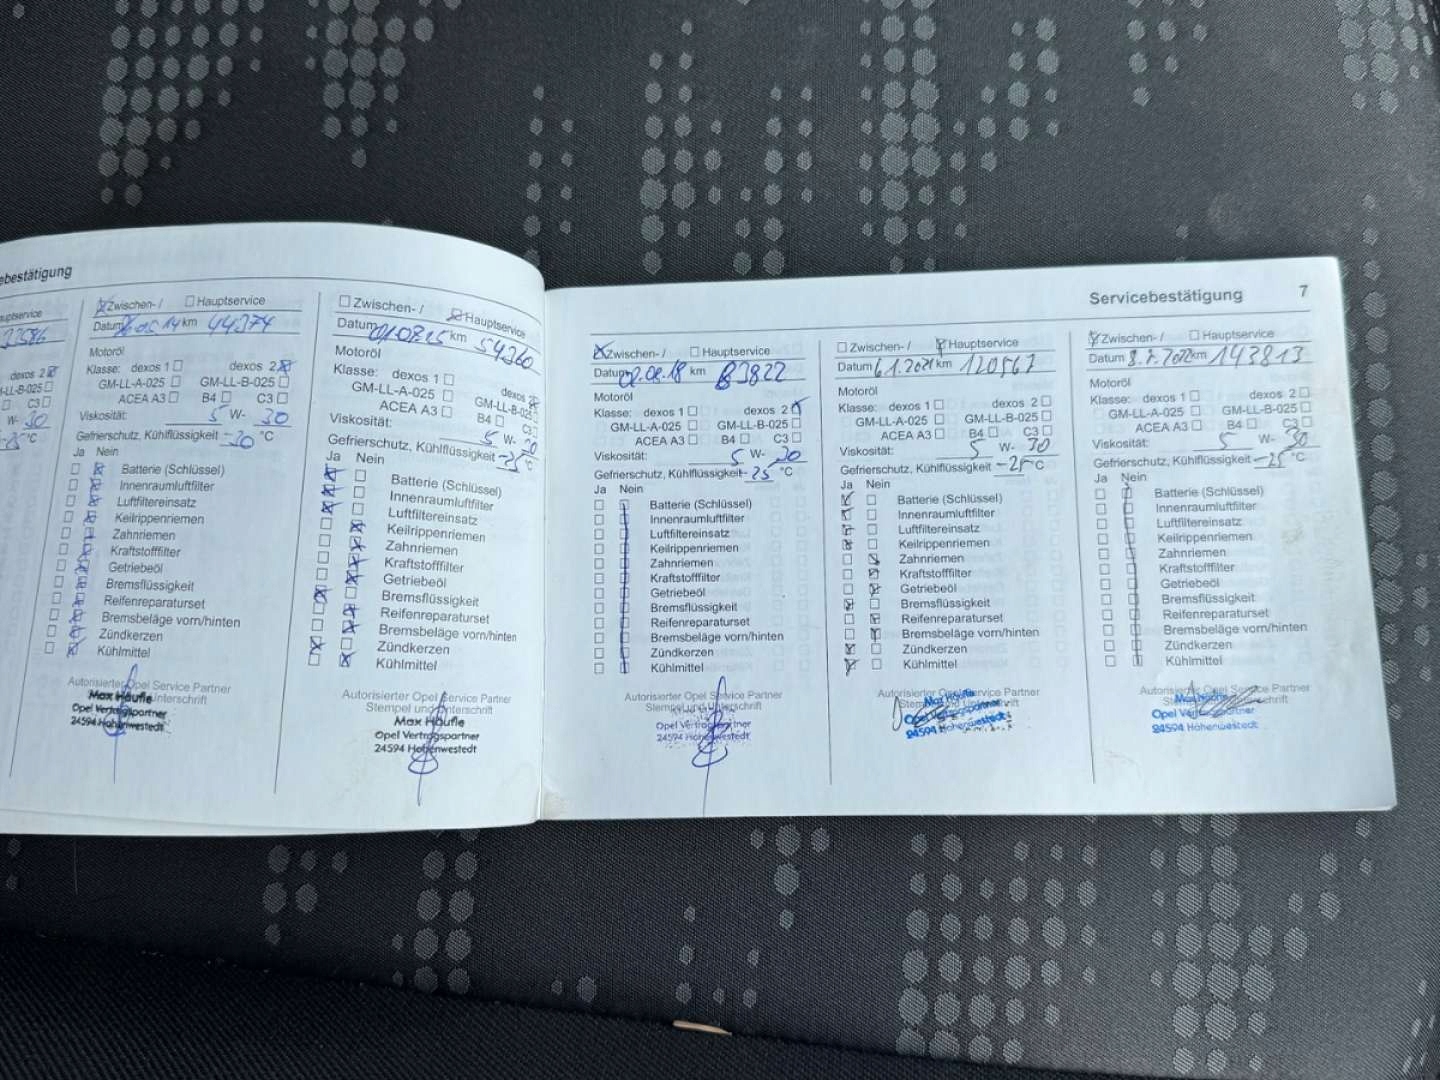 ebestätigung
uptservice
33586
dexos 2
LL-B-025
C3
W- 30
-25 °C
Zwischen- / Hauptservice
Datum 05.14 km 44374
Motoröl
Klasse: dexos 1 dexos 2
GM-LL-A-025 GM-LL-B-025
ACEA A3 B4 C3
Viskosität: 5 W- 30
Gefrierschutz, Kühlflüssigkeit -30 °C
Ja Nein
Batterie (Schlüssel)
Innenraumluftfilter
Luftfiltereinsatz
Keilrippenriemen
Zahnriemen
Kraftstofffilter
Getriebeöl
Bremsflüssigkeit
Reifenreparaturset
Bremsbeläge vorn/hinten
Zündkerzen
Kühlmittel
Autorisierter Opel Service Partner
Max Häufle
Opel Vertragspartner
24594 Hohenwestedt
Zwischen- / Hauptservice
Datum km 54360
Motoröl
Klasse: dexos 1 dexos
GM-LL-A-025 GM-LL-B-02
ACEA A3 B4 C3
Viskosität: 5 W- 30
Gefrierschutz, Kühlflüssigkeit -25 °C
Ja Nein
Batterie (Schlüssel)
Innenraumluftfilter
Luftfiltereinsatz
Keilrippenriemen
Zahnriemen
Kraftstofffilter
Getriebeöl
Bremsflüssigkeit
Reifenreparaturset
Bremsbeläge vorn/hinten
Zündkerzen
Kühlmittel
Autorisierter Opel Service Partner
Stempel und Unterschrift
Max Häufle
Opel Vertragspartner
24594 Hohenwestedt
Servicebestätigung 7
Zwischen- / Hauptservice
Datum 02.08.18 km 83822
Motoröl
Klasse: dexos 1 dexos 2
GM-LL-A-025 GM-LL-B-025
ACEA A3 B4 C3
Viskosität: 5 W- 30
Gefrierschutz, Kühlflüssigkeit -25 °C
Ja Nein
Batterie (Schlüssel)
Innenraumluftfilter
Luftfiltereinsatz
Keilrippenriemen
Zahnriemen
Kraftstofffilter
Getriebeöl
Bremsflüssigkeit
Reifenreparaturset
Bremsbeläge vorn/hinten
Zündkerzen
Kühlmittel
Autorisierter Opel Service Partner
Stempel und Unterschrift
Opel Vertragspartner
24594 Hohenwestedt
Zwischen- / Hauptservice
Datum 6.1.2021 km 120567
Motoröl
Klasse: dexos 1 dexos 2
GM-LL-A-025 GM-LL-B-025
ACEA A3 B4 C3
Viskosität: 5 W- 30
Gefrierschutz, Kühlflüssigkeit -25 °C
Ja Nein
Batterie (Schlüssel)
Innenraumluftfilter
Luftfiltereinsatz
Keilrippenriemen
Zahnriemen
Kraftstofffilter
Getriebeöl
Bremsflüssigkeit
Reifenreparaturset
Bremsbeläge vorn/hinten
Zündkerzen
Kühlmittel
Autorisierter Opel Service Partner
Max Häufle
Opel Vertragspartner
24594 Hohenwestedt
Zwischen- / Hauptservice
Datum 8.7.2022 km 143813
Motoröl
Klasse: dexos 1 dexos 2
GM-LL-A-025 GM-LL-B-025
ACEA A3 B4 C3
Viskosität: 5 W- 30
Gefrierschutz, Kühlflüssigkeit -25 °C
Ja Nein
Batterie (Schlüssel)
Innenraumluftfilter
Luftfiltereinsatz
Keilrippenriemen
Zahnriemen
Kraftstofffilter
Getriebeöl
Bremsflüssigkeit
Reifenreparaturset
Bremsbeläge vorn/hinten
Zündkerzen
Kühlmittel
Autorisierter Opel Service Partner
Opel Vertragspartner
24594 Hohenwestedt